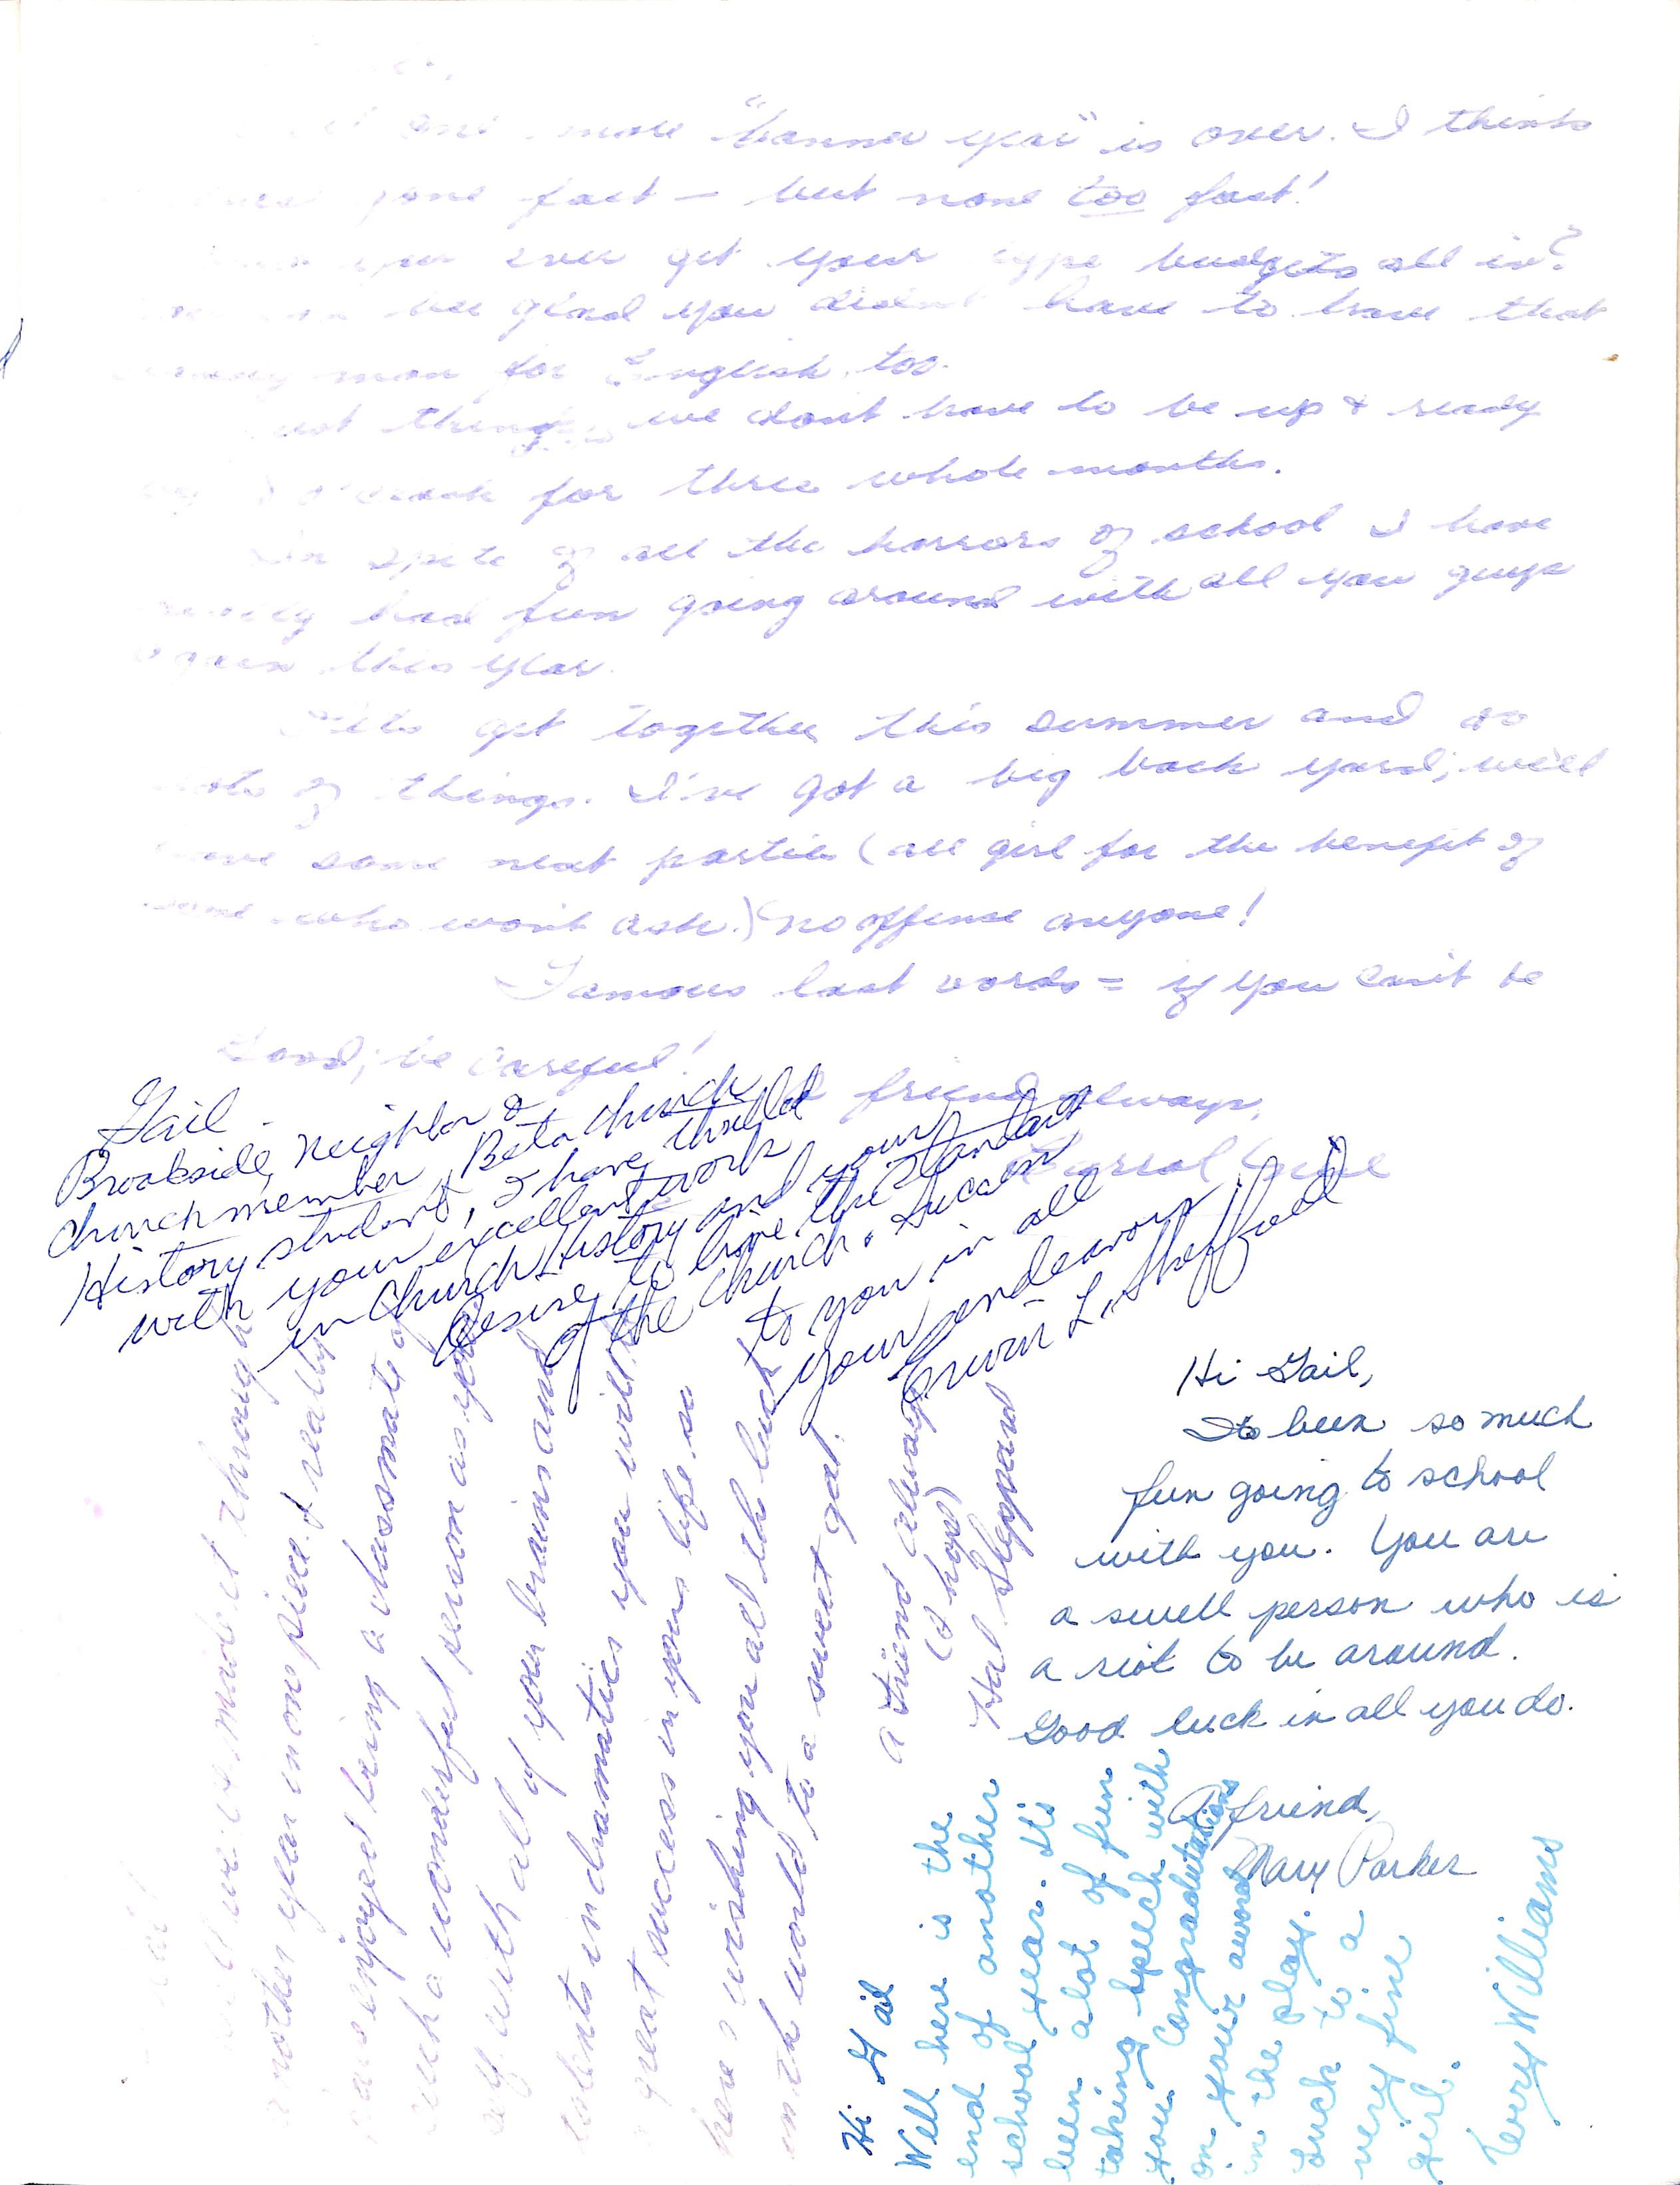 more "banner year" is over. I think
gone fast - but none too fast!
you ever get your type budgets all in?
be glad you didn't have to have that
many more for English, too.
Just think, we dont have to be up & ready
by o'clock for three whole months.
In spite of all the horrors of school I have
really had fun going around with all you guys
again this year.
Lets get together this summer and do
lots of things. I've got a big back yard; we'll
have some neat parties (all girl for the benefit of
some who won't ask.) no offense anyone!
Famous last words = if you can't be
Good; be careful!
A friend always,
Gail -
Brookside, Neighbor &
church member, Beta church
History student, I have thrilled
with your excellent work
in Church History and your
desire to live the standards
of the Church. Success
to you in all
your endeavors.
Erwin L. Sheffield
we've made it through
another year in one piece. I really
have enjoyed being a classmate of
such a wonderful person as your
self. With all of your brains and
talents in dramatics you will be
a great success in your life so
here's wishing you all the luck
in the world to a sweet gal.
a friend always
(I hope)
Hal Sheppard
Hi Gail,
Its been so much
fun going to school
with you. You are
a swell person who is
a riot to be around.
Good luck in all you do.
A friend,
Mary Parker
Hi Gail
Well here is the
end of another
school year. It's
been a lot of fun
taking speech with
you. Congradulations
on your award
in the play.
Luck to a
very fine
girl.
Terry Williams